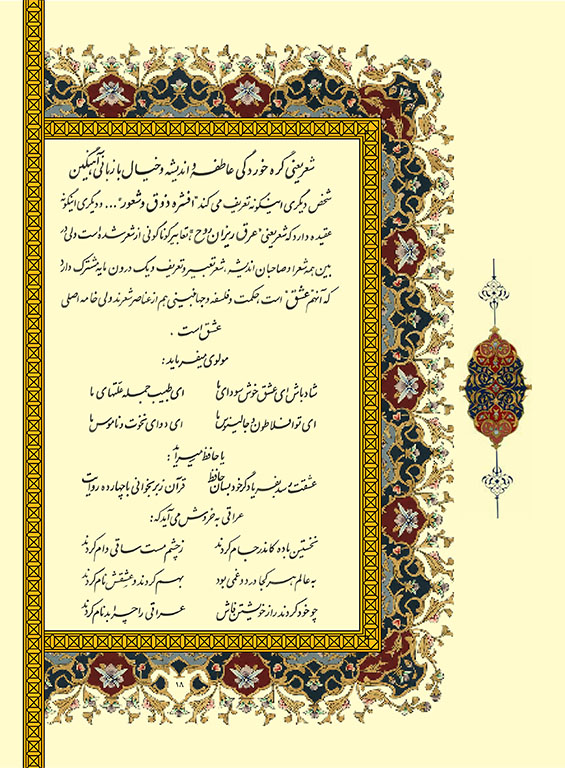 شعر یعنی گره خوردگی عاطفه و اندیشه و خیال با زبانی آهنگین
شخص دیگری اینگونه تعریف می کند "افشره ذوق و شعور" ... و دیگری اینگونه
عقیده دارد که شعر یعنی "عرق ریزان روح"، تعابیر گوناگونی از شعر شده است ولی در
بین همه شعرا و صاحبان اندیشه، شعر تعبیر و تعریف و یک درون مایه مشترک دارد
که آنهم "عشق" است حکمت و فلسفه و جهانبینی هم از عناصر شعرند ولی خامه اصلی
عشق است .
مولوی میفرماید :
شاد باش ای عشق خوش سودای ما ای طبیب جمله علتهای ما
ای تو افلاطون و جالینوس ما ای دوای نخوت و ناموس ما
یا حافظ میسراید :
عشقت رسد بفریاد گر خود بسان حافظ قرآن ز بر بخوانی با چهارده روایت
عراقی به خروش می آید که :
نخستین باده کاندر جام کردند ز چشم مست ساقی وام کردند
به عالم هر کجا درد و غمی بود بهم کردند و عشقش نام کردند
چو خود کردند راز خویشتن فاش عراقی را چرا بدنام کردند
۱۸